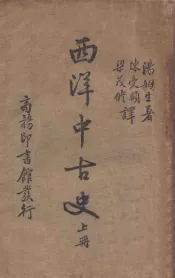 湯姆生著
陳受頤
梁茂修譯
西洋中古史上冊
商務印書館發行